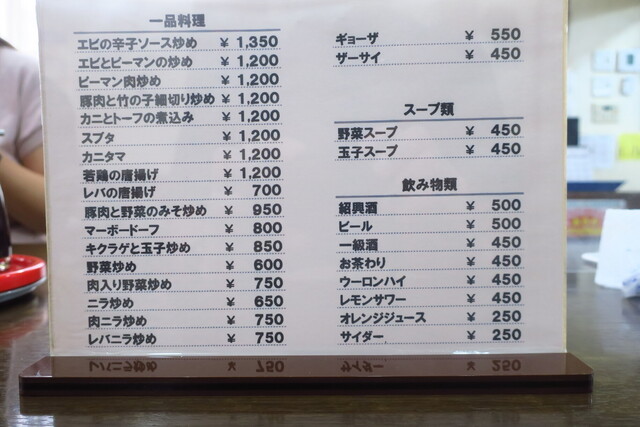 一品料理
エビの辛子ソース炒め ¥ 1,350
エビとピーマンの炒め ¥ 1,200
ピーマン肉炒め ¥ 1,200
豚肉と竹の子細切り炒め ¥ 1,200
カニとトーフの煮込み ¥ 1,200
スブタ ¥ 1,200
カニタマ ¥ 1,200
若鶏の唐揚げ ¥ 1,200
レバの唐揚げ ¥ 700
豚肉と野菜のみそ炒め ¥ 950
マーボードーフ ¥ 800
キクラゲと玉子炒め ¥ 850
野菜炒め ¥ 600
肉入り野菜炒め ¥ 750
ニラ炒め ¥ 650
肉ニラ炒め ¥ 750
レバニラ炒め ¥ 750
ギョーザ ¥ 550
ザーサイ ¥ 450
スープ類
野菜スープ ¥ 450
玉子スープ ¥ 450
飲み物類
紹興酒 ¥ 500
ビール ¥ 500
一級酒 ¥ 450
お茶わり ¥ 450
ウーロンハイ ¥ 450
レモンサワー ¥ 450
オレンジジュース ¥ 250
サイダー ¥ 250